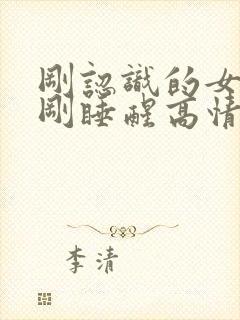 剛認識的女
剛睡醒高情
李清